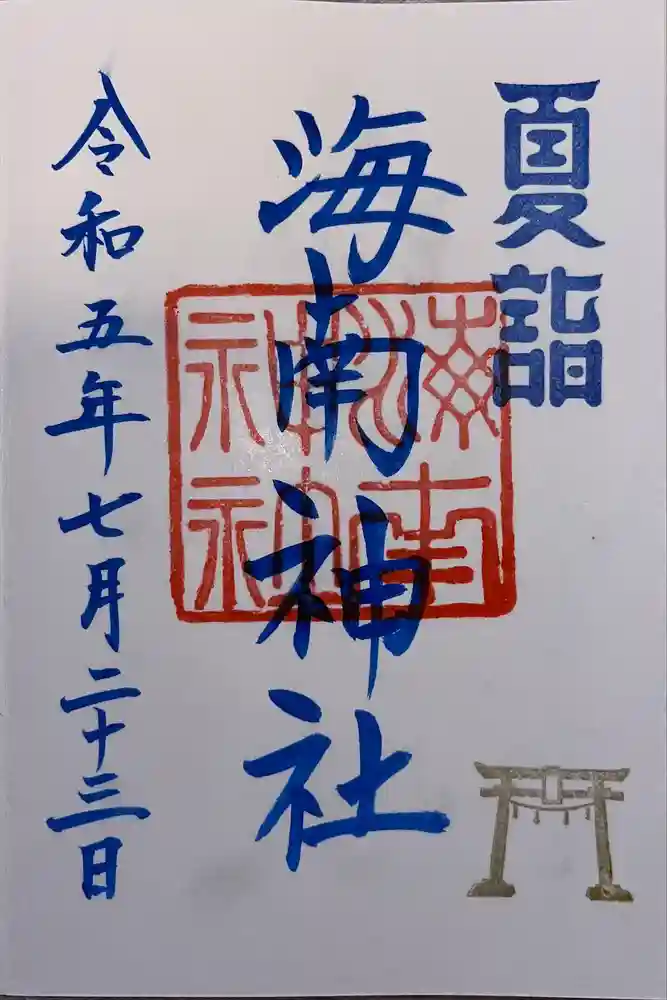 夏詣
海南神社
海南
神社
令和五年七月二十三日